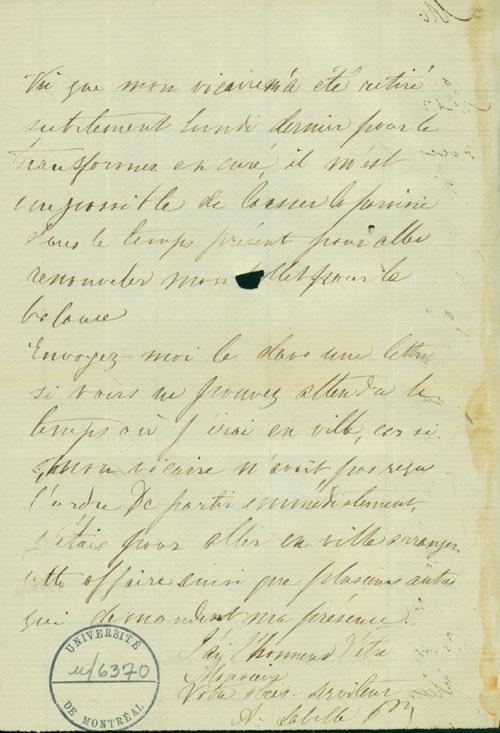 M.
Vu que mon vicaire m'a été retiré
subitement lundi dernier pour le
transformer en curé, il m'est
impossible de laisser la paroisse
dans le temps présent pour aller
renouveler mon billet pour la
balance
Envoyez-moi le dans une lettre
si vous ne pouvez attendre le
temps où j'irai en ville, car si
mon vicaire n'avait pas reçu
l'ordre de partir immédiatement,
j'étais pour aller en ville arranger
cette affaire ainsi que plusieurs autres
qui demandent ma présence.
J'ai l'honneur d'être
Monsieur
Votre très-serviteur
A. Labelle Ptre
UNIVERSITÉ
u/6370
DE MONTRÉAL